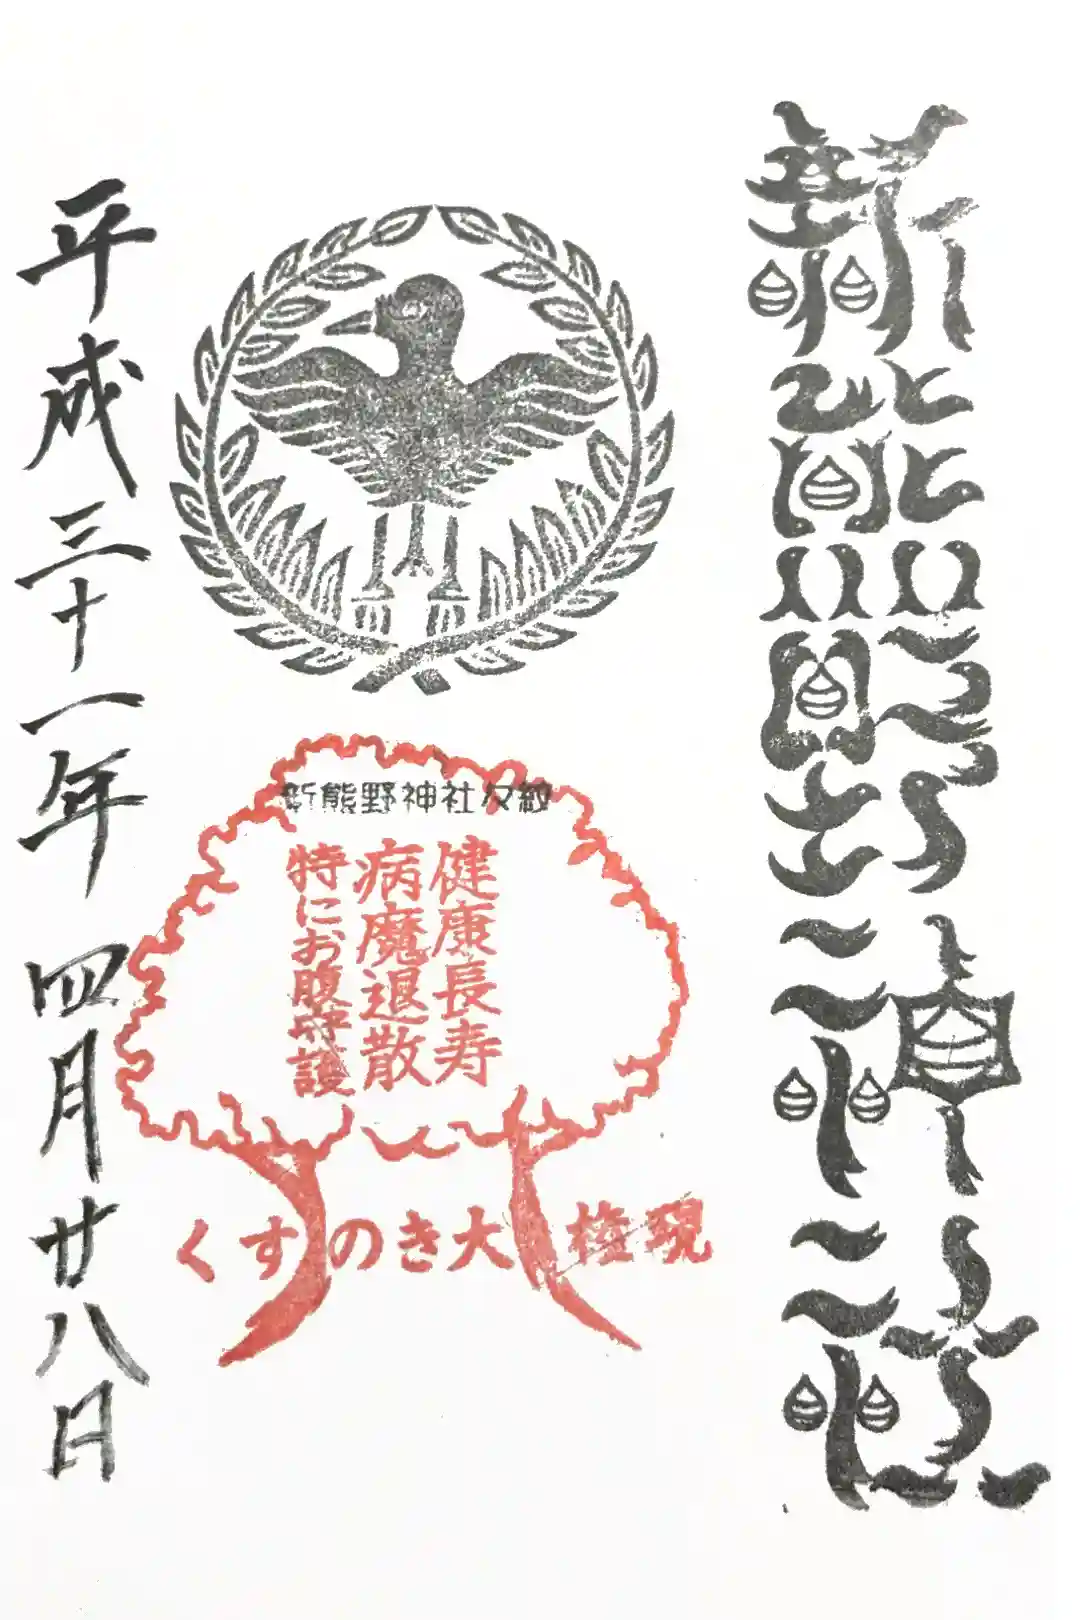 新熊野神社
新熊野神社々紋
健康長寿
病魔退散
特にお腹守護
くすのき大権現
平成三十一年 四月廿八日